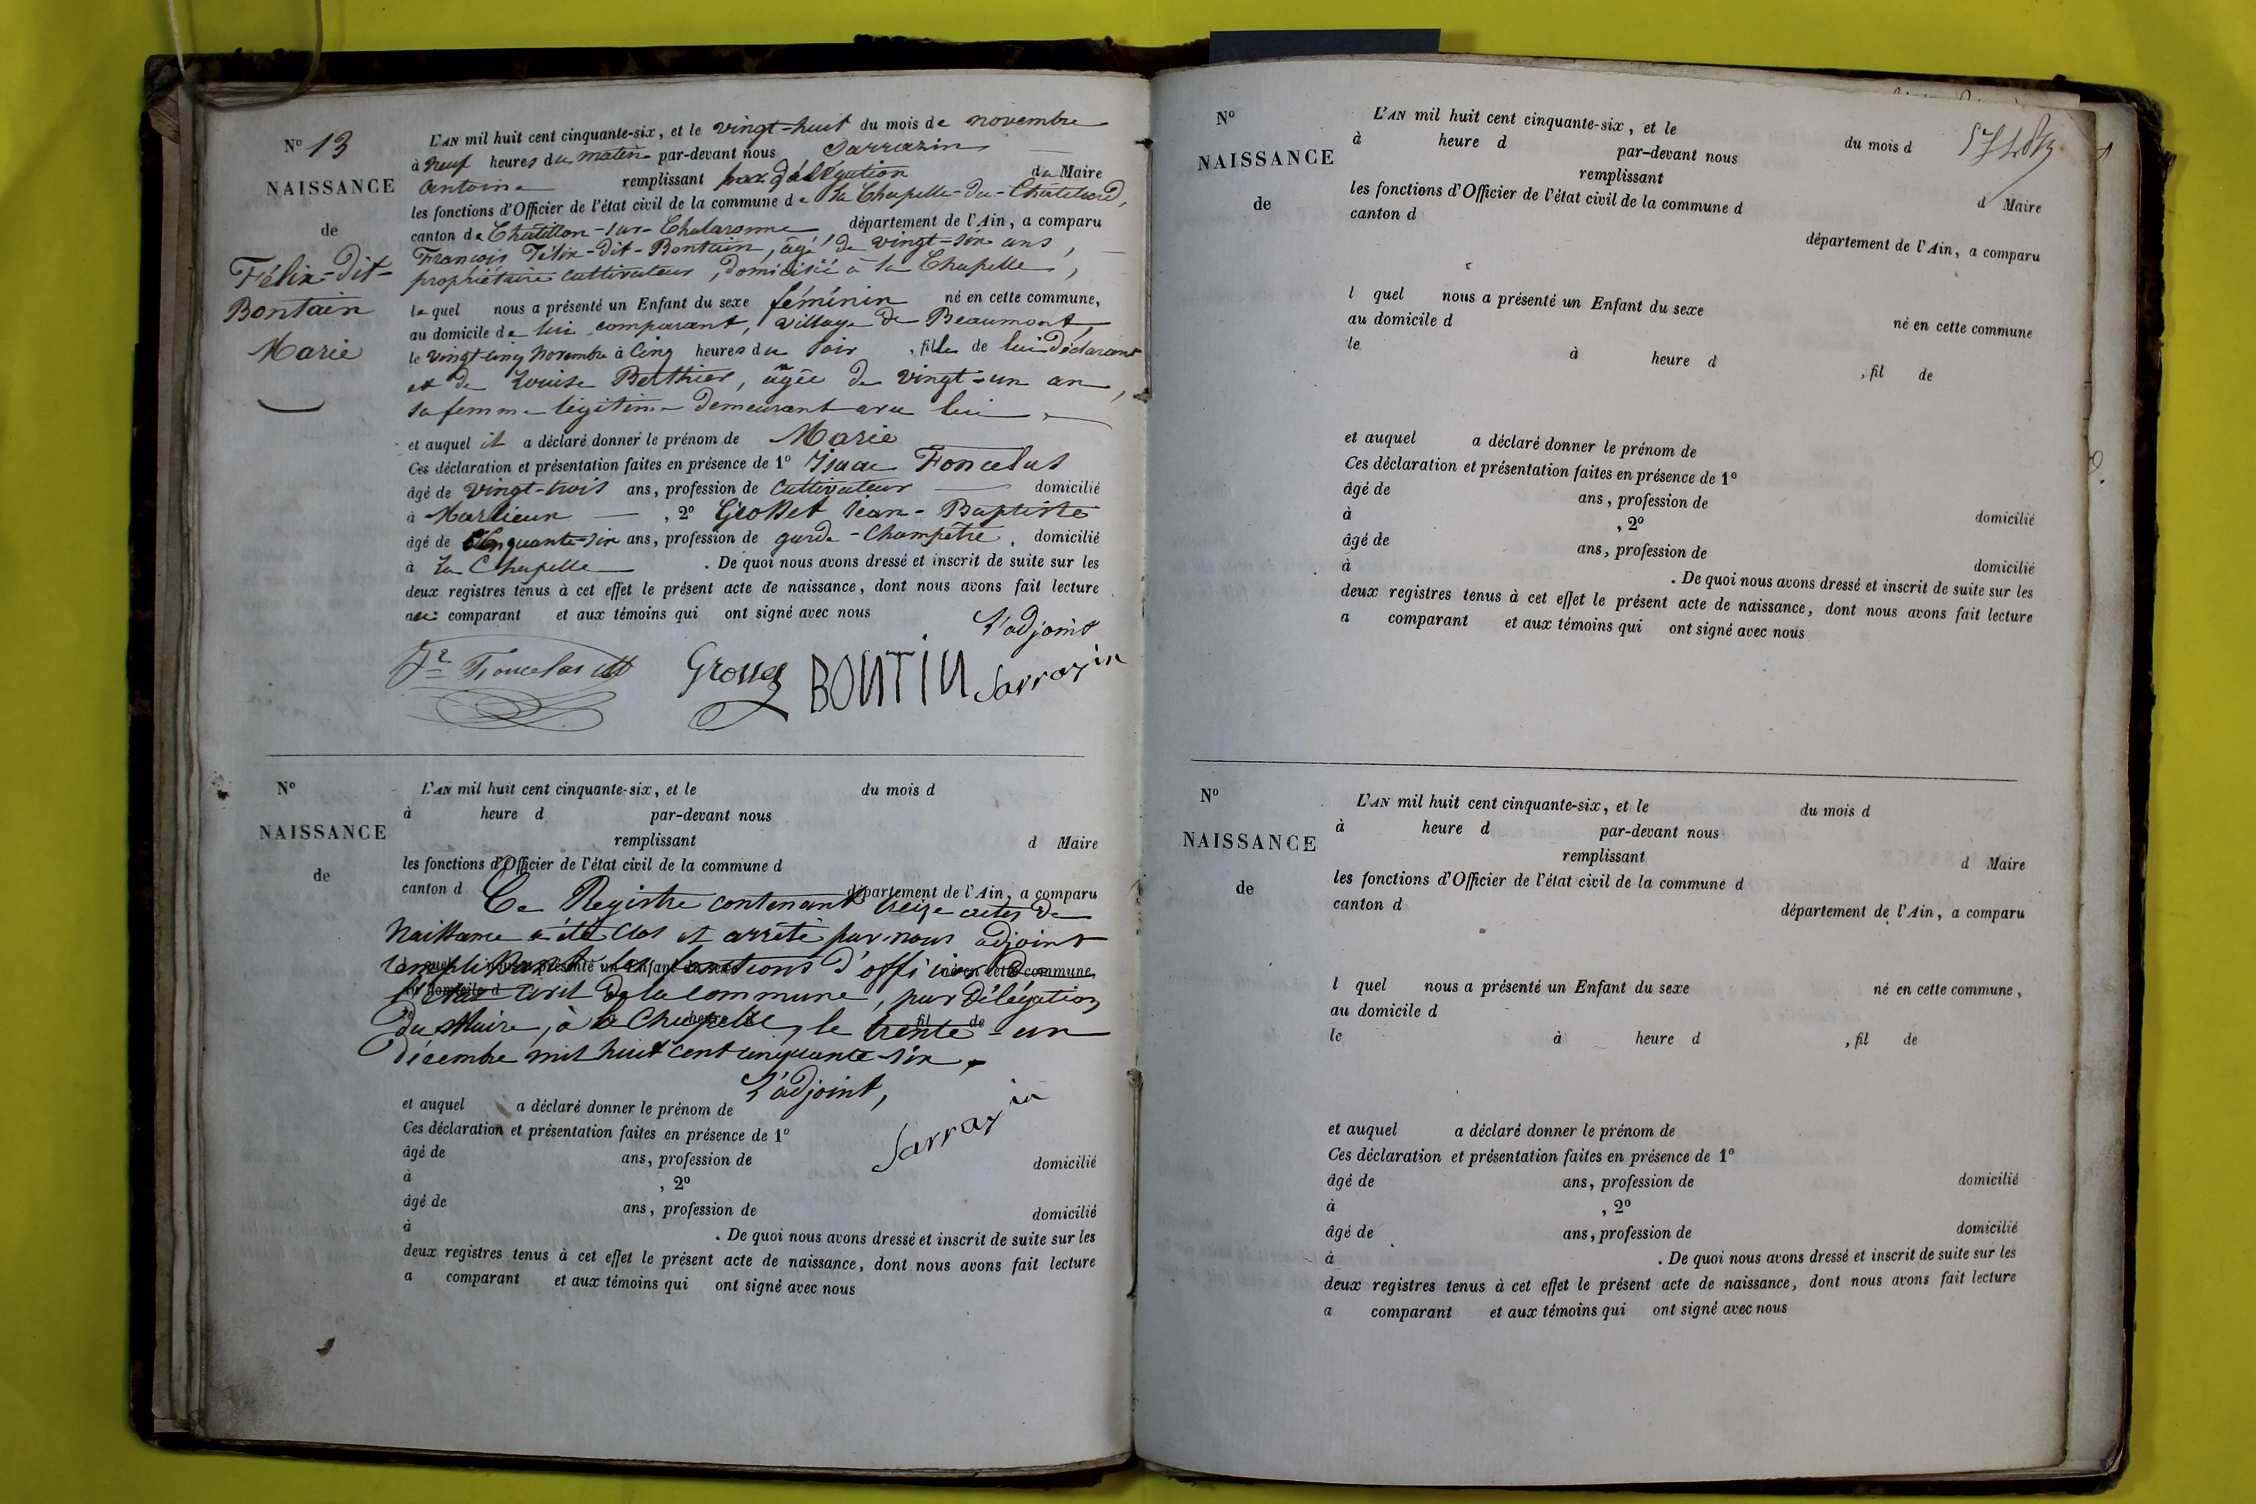 N° 13
NAISSANCE
de
Félix-dit-
Bontain
Marie
L'AN mil huit cent cinquante-six, et le vingt-huit du mois de novembre
à neuf heures du matin par-devant nous Sarrazin
antoine remplissant par délégation du Maire
les fonctions d'Officier de l'état civil de la commune de la Chapelle-du-Châtelard,
canton de Châtillon-sur-Chalaronne département de l'Ain, a comparu
François Félix-dit-Bontain, âgé de vingt-six ans,
propriétaire cultivateur, domicilié à la Chapelle,
lequel nous a présenté un Enfant du sexe féminin né en cette commune,
au domicile de lui comparant, village de Beaumont,
le vingt-cinq novembre à cinq heures du soir, fille de lui déclarant
et de Louise Berthier, âgée de vingt-un an,
sa femme légitime demeurant avec lui,
et auquel il a déclaré donner le prénom de Marie
Ces déclaration et présentation faites en présence de 1° Isaac Foncelas
âgé de vingt-trois ans, profession de cultivateur domicilié
à Marlieux, 2° Grosset Jean-Baptiste
âgé de cinquante-six ans, profession de garde-Champêtre, domicilié
à La Chapelle. De quoi nous avons dressé et inscrit de suite sur les
deux registres tenus à cet effet le présent acte de naissance, dont nous avons fait lecture
au comparant et aux témoins qui ont signé avec nous
L'adjoint
Foncelas Grosset BONTIN Sarrazin
N°
NAISSANCE
de
L'AN mil huit cent cinquante-six, et le du mois d
à heure d par-devant nous
remplissant d Maire
les fonctions d'Officier de l'état civil de la commune d
canton d département de l'Ain, a comparu
Ce Registre contenant treize actes de
Naissance a été clos et arrêté par nous adjoint
l quel nous a présenté un Enfant du sexe né en cette commune,
remplissant les fonctions d'officier de
au domicile d
l'état civil de la commune, par délégation
heure d fil de
du Maire, à la Chapelle, le trente-un
décembre mil huit cent cinquante-six.
L'adjoint,
Sarrazin
et auquel a déclaré donner le prénom de
Ces déclaration et présentation faites en présence de 1°
âgé de ans, profession de domicilié
à , 2°
âgé de ans, profession de domicilié
à . De quoi nous avons dressé et inscrit de suite sur les
deux registres tenus à cet effet le présent acte de naissance, dont nous avons fait lecture
a comparant et aux témoins qui ont signé avec nous
N°
NAISSANCE
de
L'AN mil huit cent cinquante-six, et le du mois d
à heure d par-devant nous
remplissant d Maire
les fonctions d'Officier de l'état civil de la commune d
canton d département de l'Ain, a comparu
l quel nous a présenté un Enfant du sexe né en cette commune
au domicile d
le à heure d , fil de
et auquel a déclaré donner le prénom de
Ces déclaration et présentation faites en présence de 1°
âgé de ans, profession de domicilié
à , 2°
âgé de ans, profession de domicilié
à . De quoi nous avons dressé et inscrit de suite sur les
deux registres tenus à cet effet le présent acte de naissance, dont nous avons fait lecture
a comparant et aux témoins qui ont signé avec nous
N°
NAISSANCE
de
L'AN mil huit cent cinquante-six, et le du mois d
à heure d par-devant nous
remplissant d Maire
les fonctions d'Officier de l'état civil de la commune d
canton d département de l'Ain, a comparu
l quel nous a présenté un Enfant du sexe né en cette commune,
au domicile d
le à heure d , fil de
et auquel a déclaré donner le prénom de
Ces déclaration et présentation faites en présence de 1°
âgé de ans, profession de domicilié
à , 2°
âgé de ans, profession de domicilié
à . De quoi nous avons dressé et inscrit de suite sur les
deux registres tenus à cet effet le présent acte de naissance, dont nous avons fait lecture
a comparant et aux témoins qui ont signé avec nous